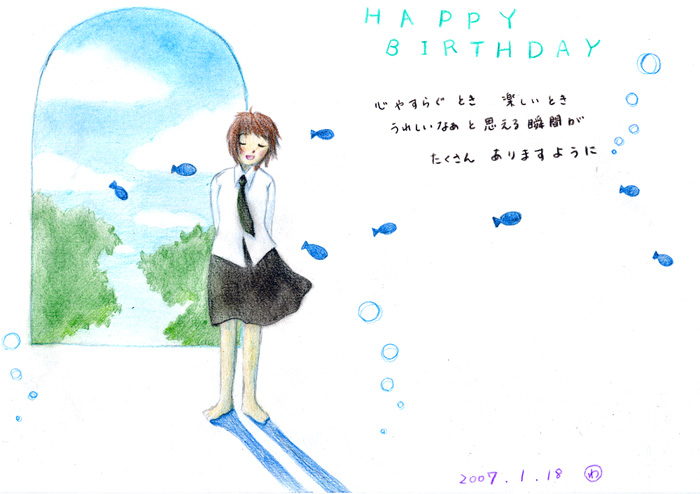 HAPPY
BIRTHDAY
心やすらぐとき 楽しいとき
うれしいなぁと思える瞬間が
たくさん ありますように
2007.1.18 わ